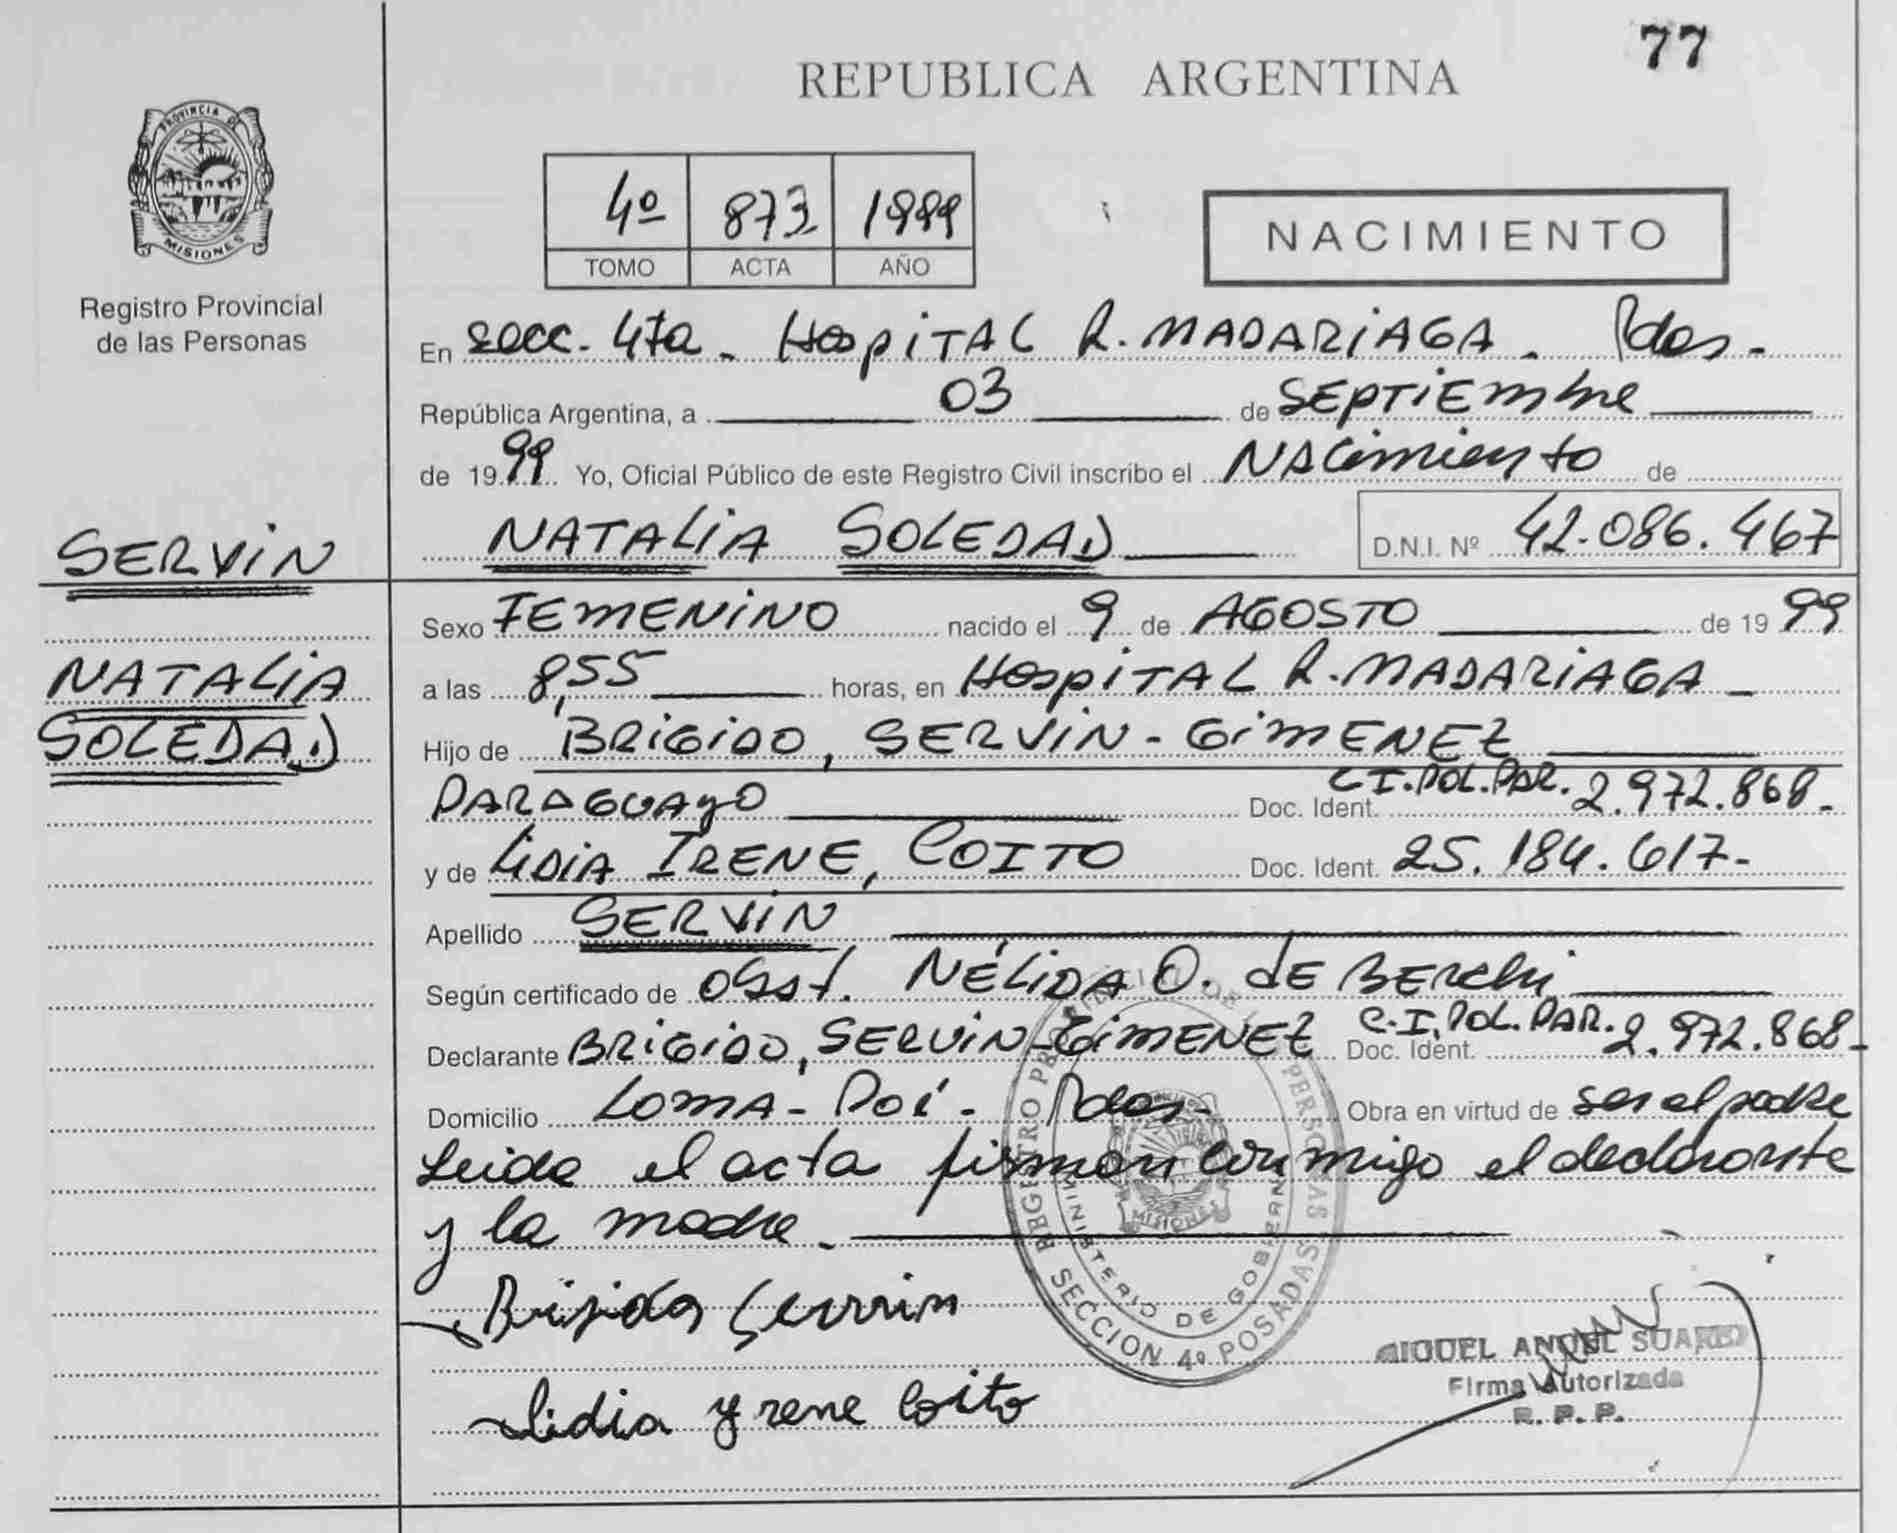 77
REPUBLICA ARGENTINA
PROVINCIA DE
MISIONES
Registro Provincial
de las Personas
4º 873 1999
TOMO ACTA AÑO
NACIMIENTO
En secc. 4ta - HospiTAL R. MADARiAGA. Pdas-
República Argentina, a 03 de SEPTiEmbre
de 1999 Yo, Oficial Público de este Registro Civil inscribo el NACimiento de
SERViN
NATALiA SOLEDAD D.N.I. Nº 42.086.467
Sexo FEMENiNO nacido el 9 de AGOSTO de 1999
NATALiA
a las 8,55 horas, en HospiTAL R. MADARiAGA -
SOLEDAD
Hijo de BRiGiDO, SERViN - GiMENEZ
PARAGUAyO Doc. Ident. C.I.POL.PAR. 2.972.868-
y de LiDiA IRENE, COITO Doc. Ident. 25.184.617-
Apellido SERViN
Según certificado de Obst. NÉLiDA O. dE BERchi
Declarante BRiGiDO, SERViN-GiMENEZ Doc. Ident. C.I.POL.PAR. 2.972.868-
Domicilio LOMA-Poi- Pdas- Obra en virtud de ser el padre
Leida el acta firman conmigo el declarante
y la madre.-
Brijido Servin
Lidia yrene Coito
REGISTRO PROVINCIAL DE LAS PERSONAS
MINISTERIO DE GOBIERNO
MISIONES
SECCION 4º POSADAS
MIGUEL ANGEL SUAREZ
Firma Autorizada
R. P. P.